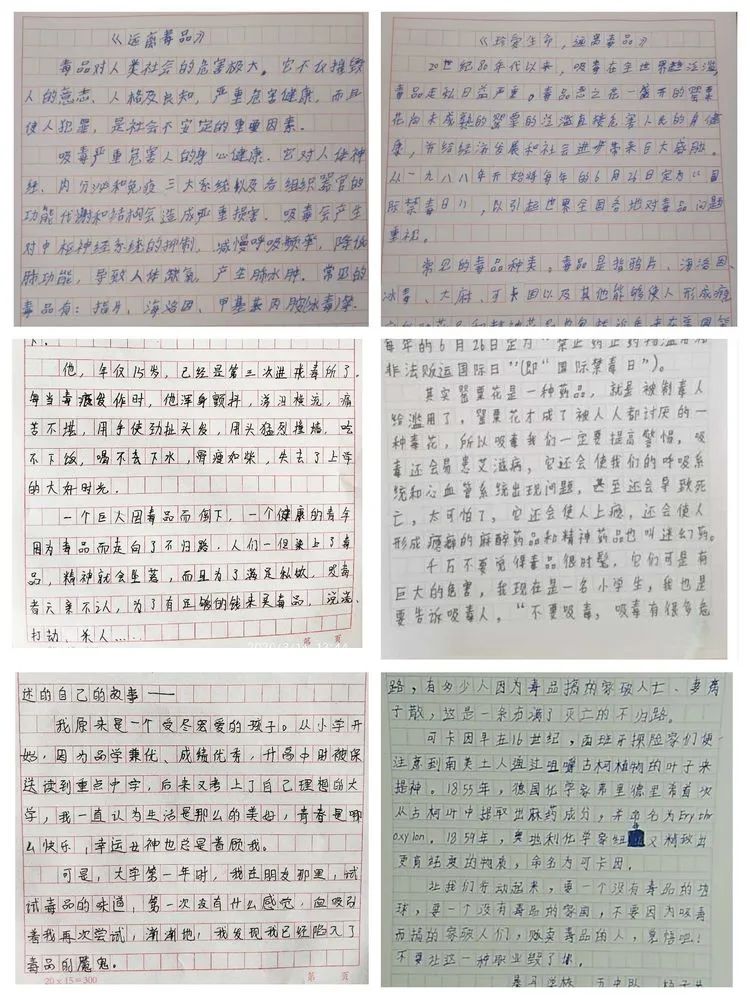 《远离毒品》
毒品对人类社会的危害极大。它不仅摧毁
人的意志、人格及良知，严重危害健康，而且
使人犯罪，是社会不安定的重要因素。
吸毒严重危害人的身心健康。它对人体神
经、内分泌和免疫三大系统以及各组织器官的
功能代谢和结构会造成严重损害。吸毒会产生
对中枢神经系统的抑制，减慢呼吸频率，降低
肺功能，导致人体缺氧，产生肺水肿。常见的
毒品有：指片、海洛因、甲基苯丙胺(冰毒)等.
《珍爱生命，远离毒品》
20世纪80年代以来，吸毒在全世界越泛滥
毒品走私日益严重。毒品恶之花一盛开的罂粟
花向未成熟的罂粟的泛滥直接危害人民的身健
康，并给经济发展和社会进步带来巨大威胁。
从一九八八年开始将每年的6月26日定为"国
际禁毒日"，以引起世界全国各地对毒品问题
重视。
常见的毒品种类。毒品是指鸦片、海洛因、
冰毒、大麻、可卡因以及其他能够使人形成瘾
他，年仅15岁，已经是第三次进戒毒所了。
每当毒瘾发作时，他浑身颤抖，涕泪横流，痛
苦不堪，用手使劲扯头发，用头猛烈撞墙，吃
不下饭，喝不去下水，骨瘦如柴，失去了上学
的大好时光。
一个巨人因毒品而倒下，一个健康的青年
因为毒品而走向了不归路。人们一但染上了毒
品，精神就会坠落，而且为了满足私欲，吸毒
者六亲不认，为了有足够的钱来买毒品，
打劫、杀人……
第 页
每年的6月26日定为"禁止药
非法贩运国际日"(即"国际禁毒日")。
其实罂粟花是一种药品，就是被制毒人
给滥用了，罂粟花才成了被人人都讨厌的一
种毒花，所以吸毒我们一定要提高警惕，吸
毒还会易患艾滋病，它还会使我们的呼吸系
统和心血管系统出现问题，甚至还会导致死
亡，太可怕了，它还会使人上瘾，还会使人
形成瘾癖的麻醉药品和精神药品也叫迷幻药。
千万不要觉得毒品很时髦，它们可是有
巨大的危害，我现在是一名小学生，我也是
要告诉吸毒人，"不要吸毒，吸毒有很多危
述的自己的故事——
我原来是一个受尽宠爱的孩子。从小学开
始，因为品学兼优、成绩优秀，升高中时被保
送读到重点中学，后来又考上了自己理想的大
学，我一直认为生活是那么的美好，青春是那
么快乐，幸运女神也总是眷顾我。
可是，大学第一年时，我在朋友那里，试
试毒品的味道，第一次没有什么感觉，但吸引
着我再次尝试，渐渐地，我发现我已经陷入了
毒品的魔鬼。
20×15=300
第 页
路，有多少人因为毒品搞的家破人亡、妻离
子散，这是一条布满了灭亡的不归路。
可卡因早在16世纪，西班牙探险家们便
注意到南美土人通过咀嚼古柯植物的叶子来
提神。1855年，德国化学家弗里德里希首次
从古柯叶中提取出麻药成分，并命名为Eryth
oxylon。1859年，奥地利化学家纽 又精致出
更高纯度的物质，命名为可卡因。
让我们行动起来，要一个没有毒品的地
球，要一个没有毒品的家园，不要因为吸毒
而搞的家破人们，贩卖毒品的人，觉悟吧！
不要让这一种职业毁了你。